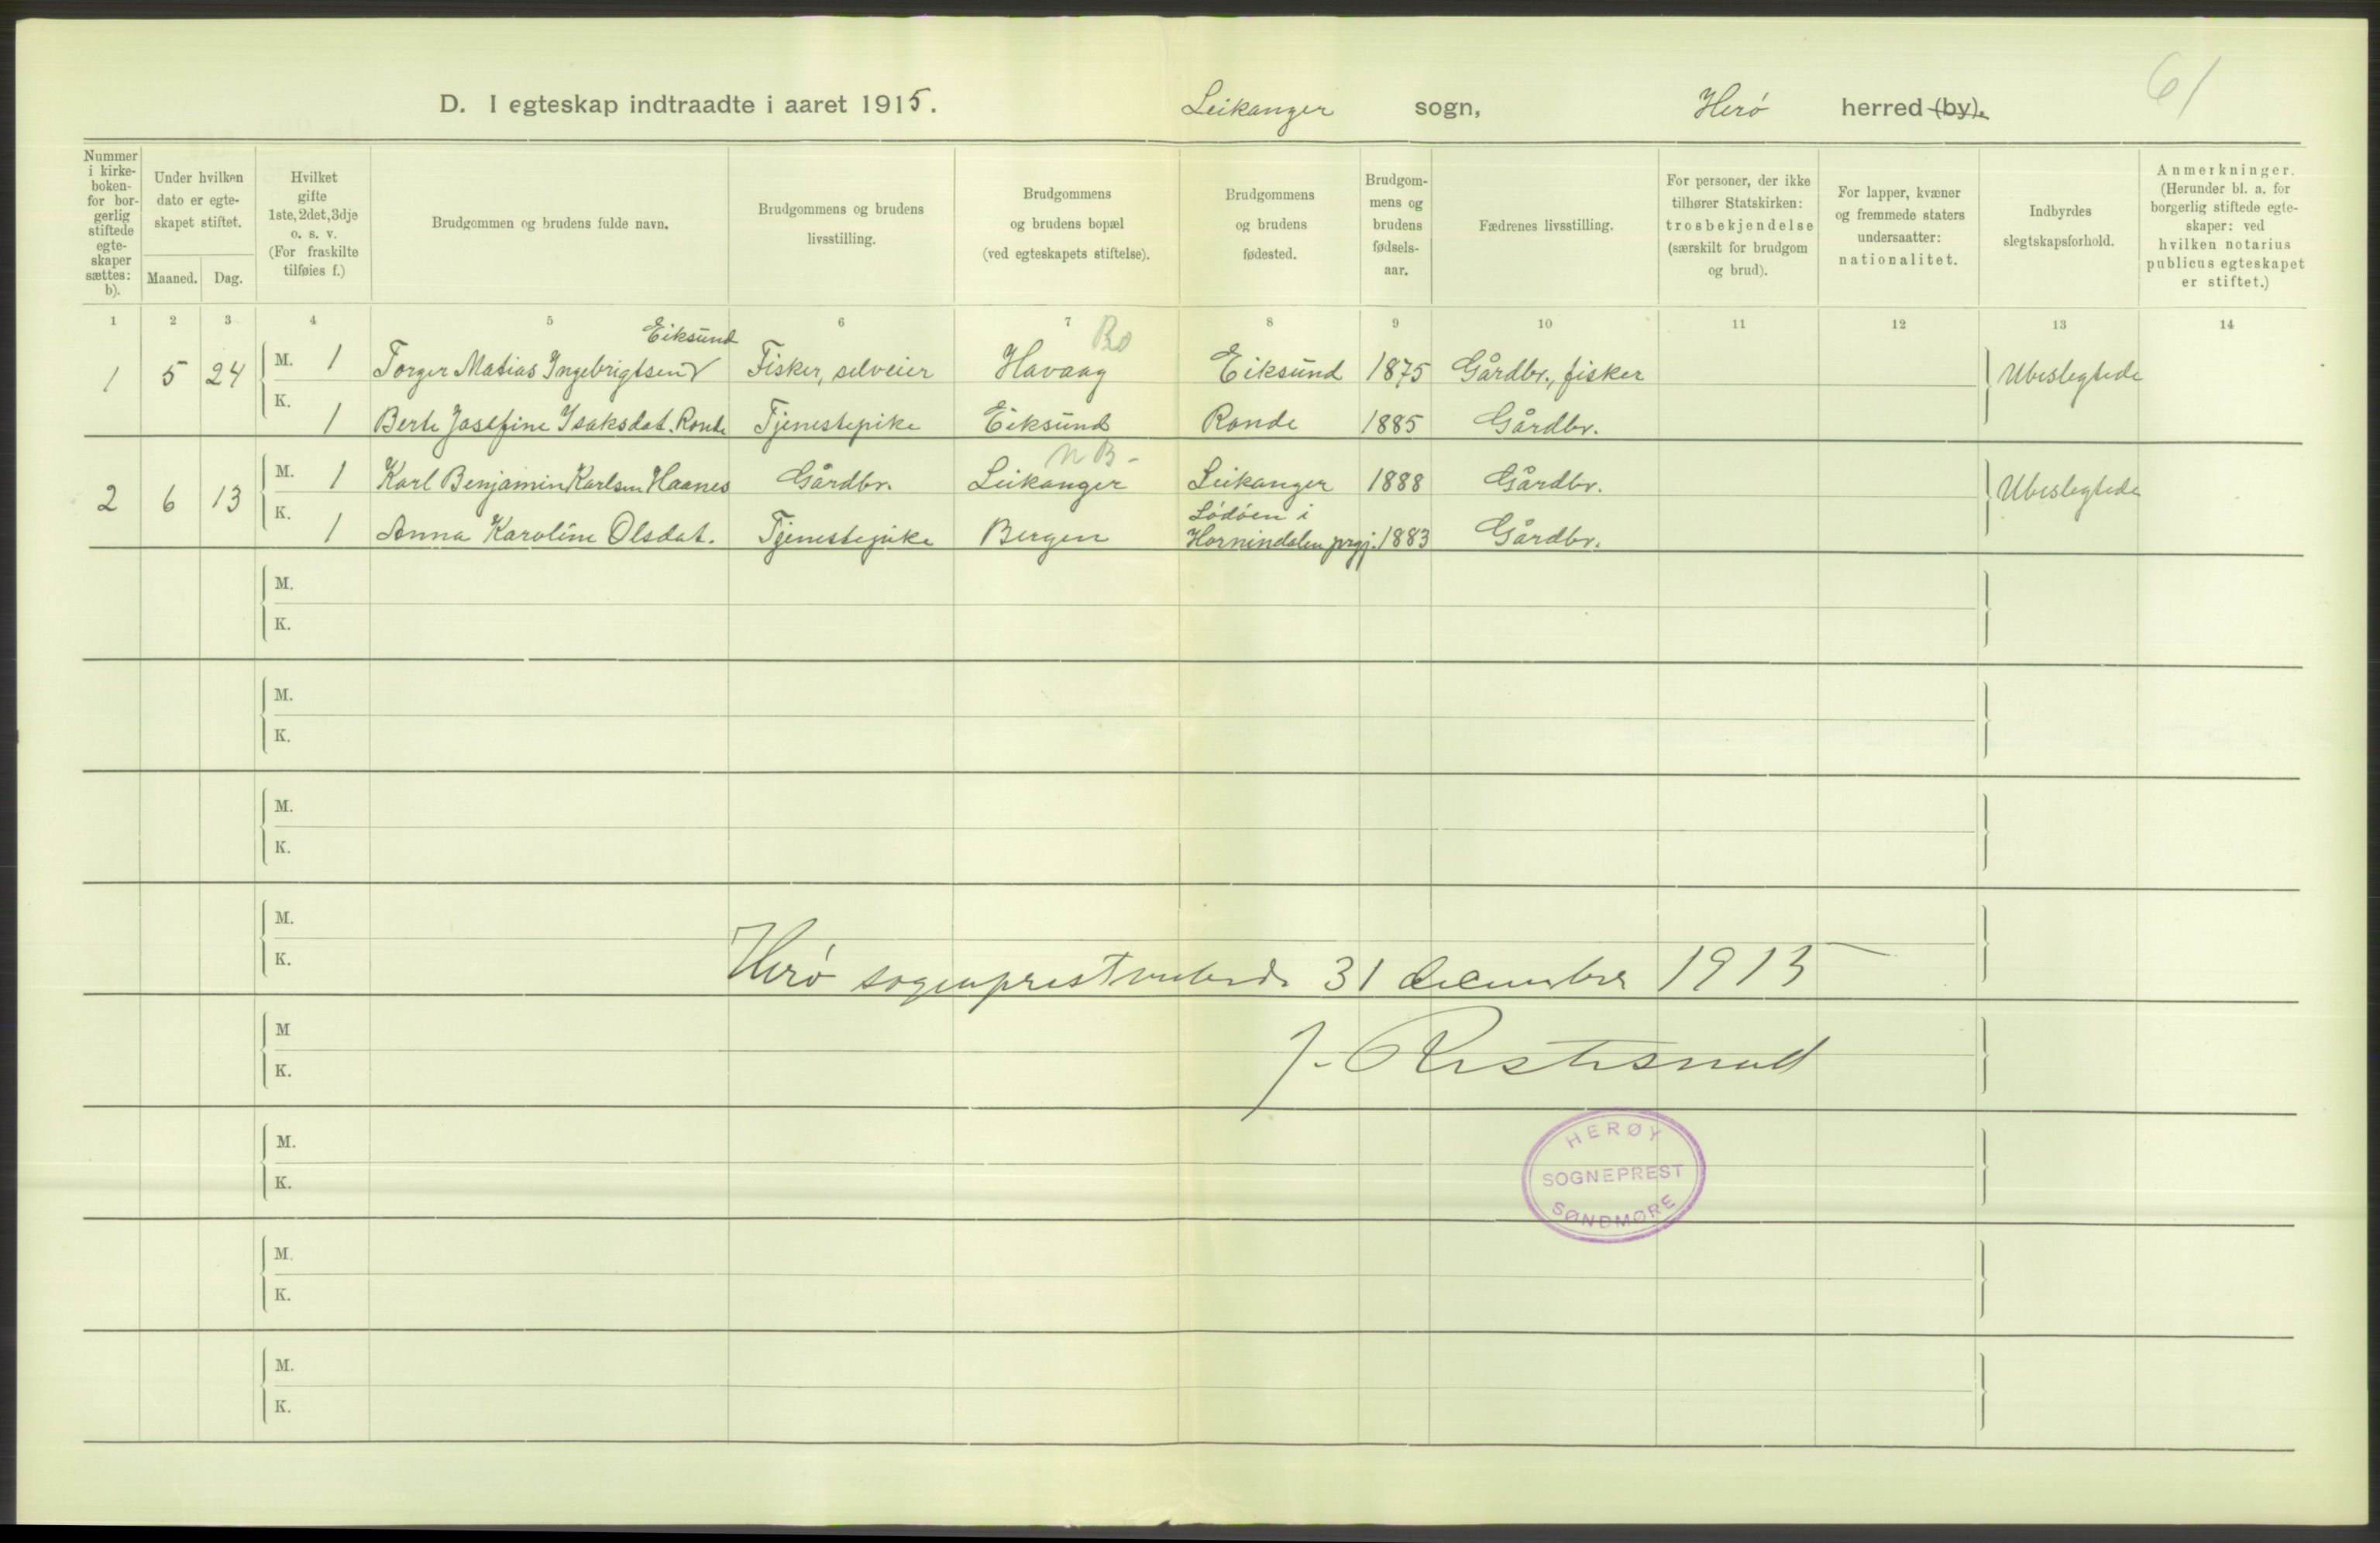 61
D. I egteskap indtraadte i aaret 1915. Leikanger sogn, Herö herred (by).
Nummer i kirkeboken for borgerlig stiftede egteskaper sættes: b).
Under hvilken dato er egteskapet stiftet.
Maaned. Dag.
Hvilket gifte 1ste, 2det, 3dje o. s. v. (For fraskilte tilføies f.)
Brudgommen og brudens fulde navn.
Brudgommens og brudens livsstilling.
Brudgommens og brudens bopæl (ved egteskapets stiftelse).
Brudgommens og brudens fødested.
Brudgommens og brudens fødselsaar.
Fædrenes livsstilling.
For personer, der ikke tilhører Statskirken: trosbekjendelse (særskilt for brudgom og brud).
For lapper, kvæner og fremmede staters undersaatter: nationalitet.
Indbyrdes slegtskapsforhold.
Anmerkninger. (Herunder bl. a. for borgerlig stiftede egteskaper: ved hvilken notarius publicus egteskapet er stiftet.)
1 2 3 4 5 6 7 8 9 10 11 12 13 14
Eiksund
1 5 24 M. 1 Torger Matias Ingebrigtsen Fisker, selveier Havaag Eiksund 1875 Gårdbr., fisker Ubeslegtede
K. 1 Berte Josefine Isaksdat. Ronde Tjenestepike Eiksund Ronde 1885 Gårdbr.
2 6 13 M. 1 Karl Benjamin Karlsen Haanes Gårdbr. Leikanger Leikanger 1888 Gårdbr. Ubeslegtede
Lödöen i
K. 1 Anna Karoline Olsdat. Tjenestepike Bergen Hornindalen prgj. 1883 Gårdbr.
M.
K.
M.
K.
M.
K.
M.
K.
Herö 31 december 1915
M
K.
J.
M.
K.
HERØY
SOGNEPREST
SØNDMØRE
M.
K.
M.
K.